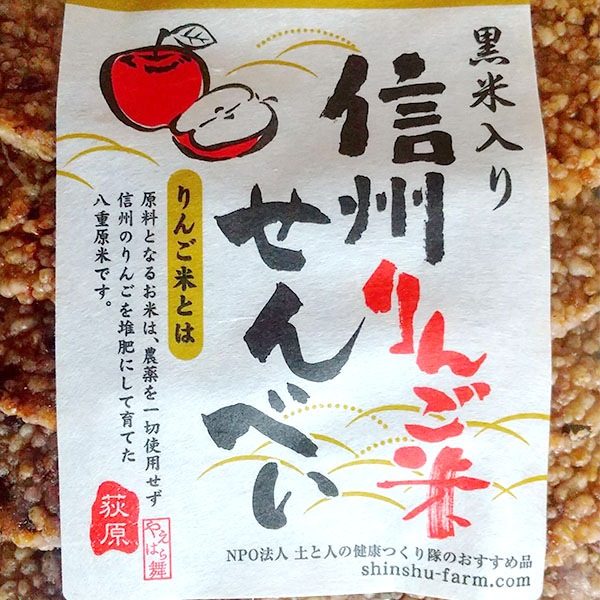 黒米入り
信州りんご米
せんべい
りんご米とは
原料となるお米は、農薬を一切使用せず
信州のりんごを堆肥にして育てた
八重原米です。
荻原
やえ
はら
舞
NPO法人 土と人の健康つくり隊のおすすめ品
shinshu-farm.com